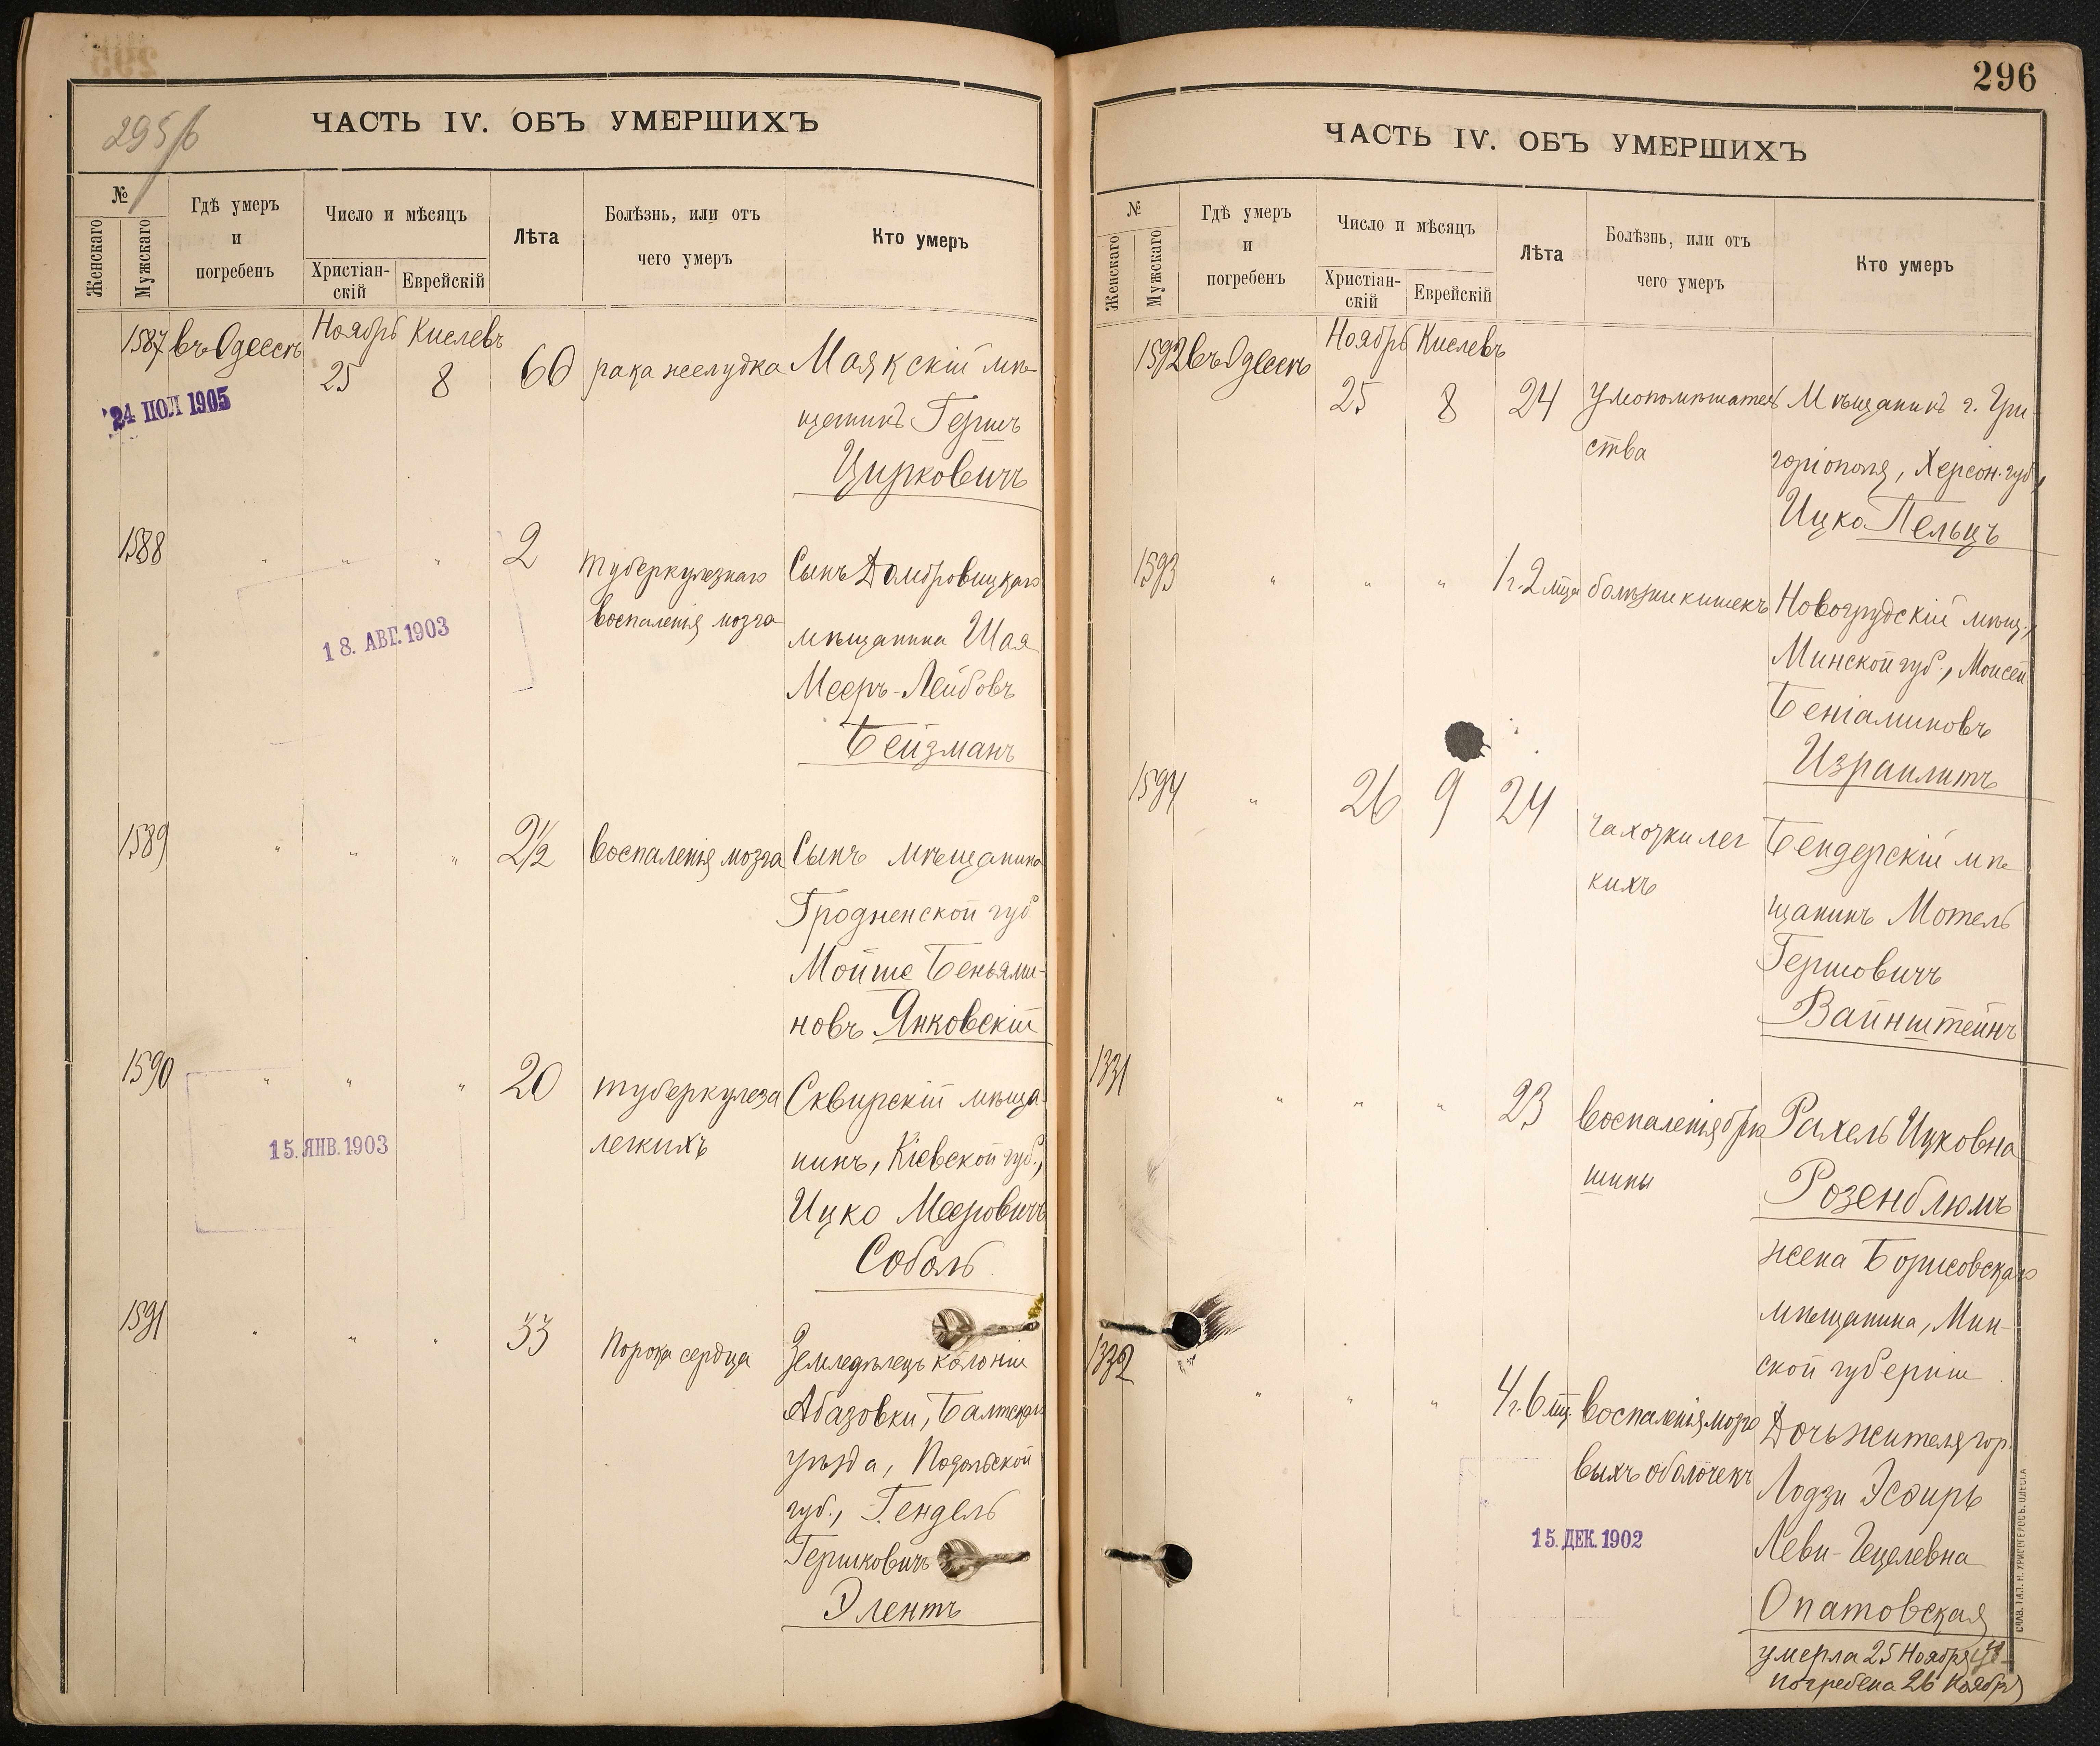 295/б
ЧАСТЬ IV. ОБЪ УМЕРШИХЪ
№
Женскаго
Мужскаго
Гдѣ умеръ
и
погребенъ
Число и мѣсяцъ
Христіан-
скій
Еврейскій
Лѣта
Болѣзнь, или отъ
чего умеръ
Кто умеръ
1587 въ Одессѣ Ноябрь Кислевъ
25 8 60 рака желудка Маякскій мѣ-
24 ПОЛ 1905
щанинъ Гершъ
Цирковичъ
1588 " " " 2 туберкулезнаго Сынъ Домбровицкаго
воспаленія мозга
мѣщанина Шая
18. АВГ. 1903
Мееръ-Лейбовъ
Бейзманъ
1589 " " " 2½ воспаленія мозга Сынъ мѣщанина
Гродненской губ
Мойше Беньями-
новъ Янковскій
1590 " " " 20 туберкулеза Сквирскій мѣща
легкихъ
нинъ, Кіевской губ.,
15. ЯНВ. 1903
Ицко Мееровичъ
Соболь
1591 " " " 33 порока сердца Земледѣлецъ колоніи
Абазовки, Балтскаго
уѣзда, Подольской
губ., Гендель
Гершковичъ
Элентъ
296
ЧАСТЬ IV. ОБЪ УМЕРШИХЪ
№
Женскаго
Мужскаго
Гдѣ умеръ
и
погребенъ
Число и мѣсяцъ
Христіан-
скій
Еврейскій
Лѣта
Болѣзнь, или отъ
чего умеръ
Кто умеръ
1592 въ Одессѣ Ноябрь Кислевъ
25 8 24 умопомѣшатель Мѣщанинъ г. Гри-
ства
горіополя, Херсон. губ.,
Ицко Пельцъ
1593 " " " 1 г. 2 мца болѣзни кишекъ Новогрудскій мѣщ.,
Минской губ., Моисей
Беніаминовъ
Израилитъ
1594 " 26 9 24 чахотки лег Бендерскій мѣ
кихъ
щанинъ Мотель
Гершовичъ
Вайнштейнъ
1331 " " " 23 воспаленія брю Рахель Ицковна
шины
Розенблюмъ
жена Борисовскаго
мѣщанина, Мин-
ской губерніи
1332 " " " 4 г. 6 мц. воспаленія мозго Дочь жителя гор.
выхъ оболочекъ
Лодзи Эсѳирь
15. ДЕК. 1902
Леви-Гецелевна
Опатовская
умерла 25 Ноября
погребена 26 Ноября)